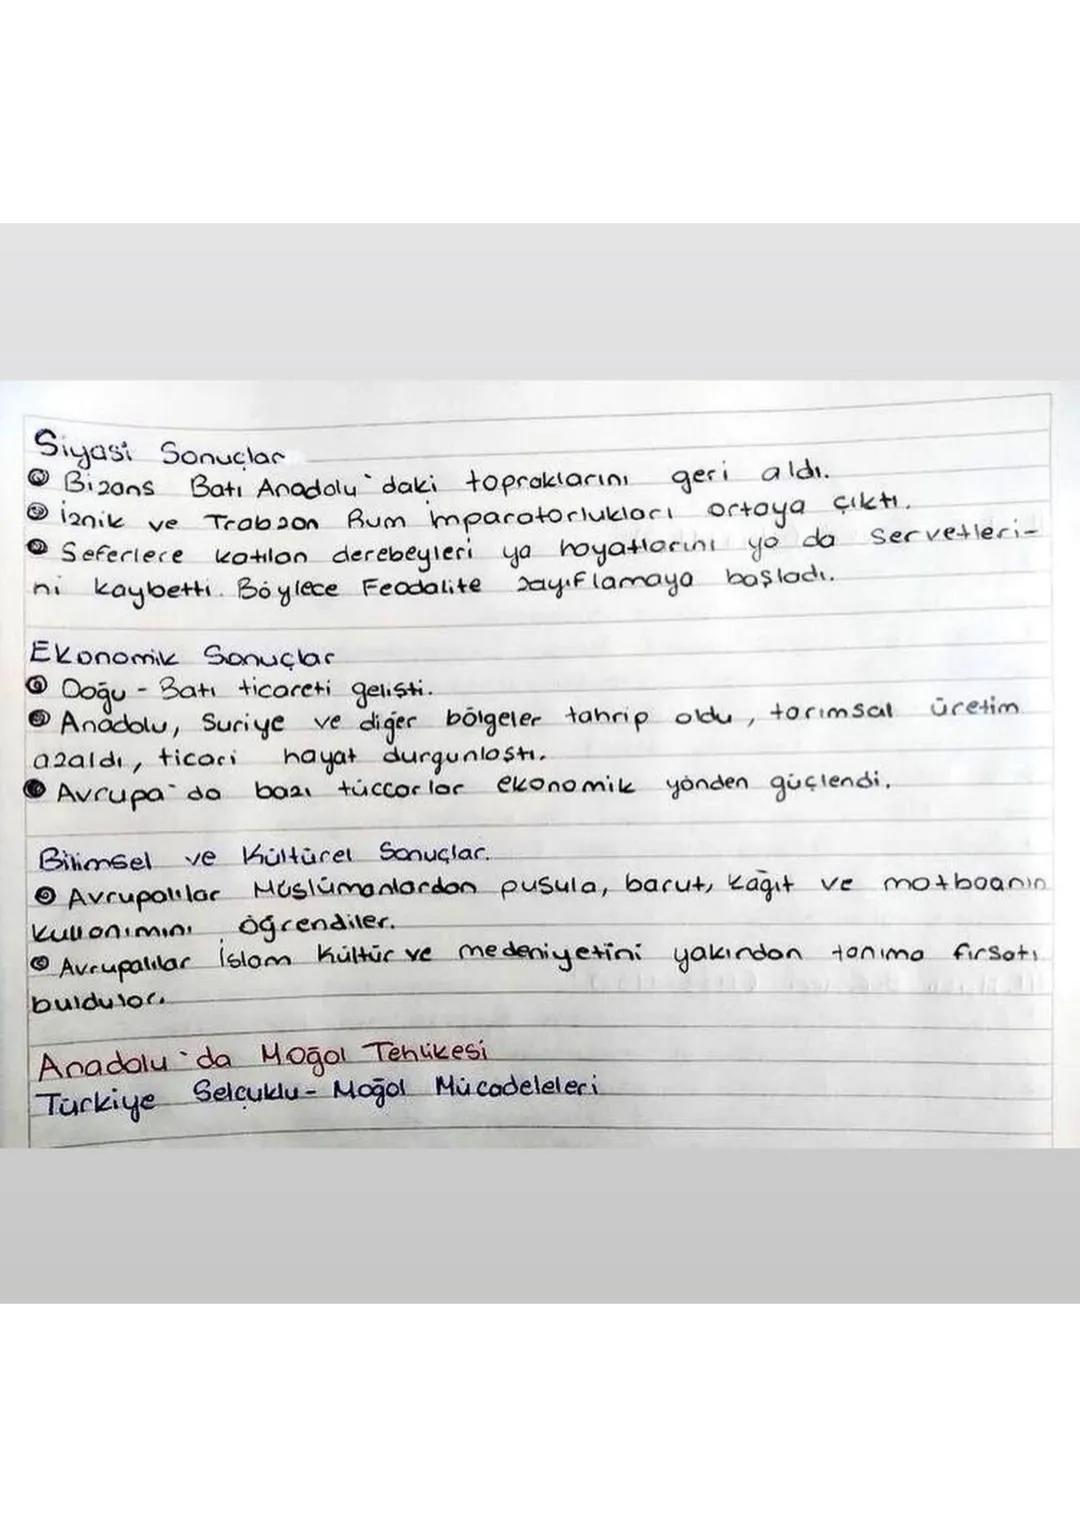 Siyasi Sonuçlar
Bizans Batı Anadolu'daki topraklarını geri aldı.
İznik ve Trabzon Rum imparatorlukları ortaya çıktı.
Seferlere katılan derebeyleri ya hayatlarını ya da servetleri-
ni kaybetti. Böylece Feodalite zayıflamaya başladı.
Ekonomik Sonuçlar
Doğu - Batı ticareti gelişti.
Anadolu, Suriye ve diğer bölgeler tahrip oldu, tarımsal üretim
azaldı, ticari hayat durgunlaştı.
Avrupa'da bazı tüccarlar ekonomik yönden güçlendi.
Bilimsel ve Kültürel Sonuçlar.
Avrupalılar Müslümanlardan pusula, barut, kağıt ve matbaanın
kullanımını öğrendiler.
Avrupalılar İslam kültür ve medeniyetini yakından tanıma fırsatı
buldular.
Anadolu'da Moğol Tehlikesi
Türkiye Selçuklu - Moğol Mücadeleleri